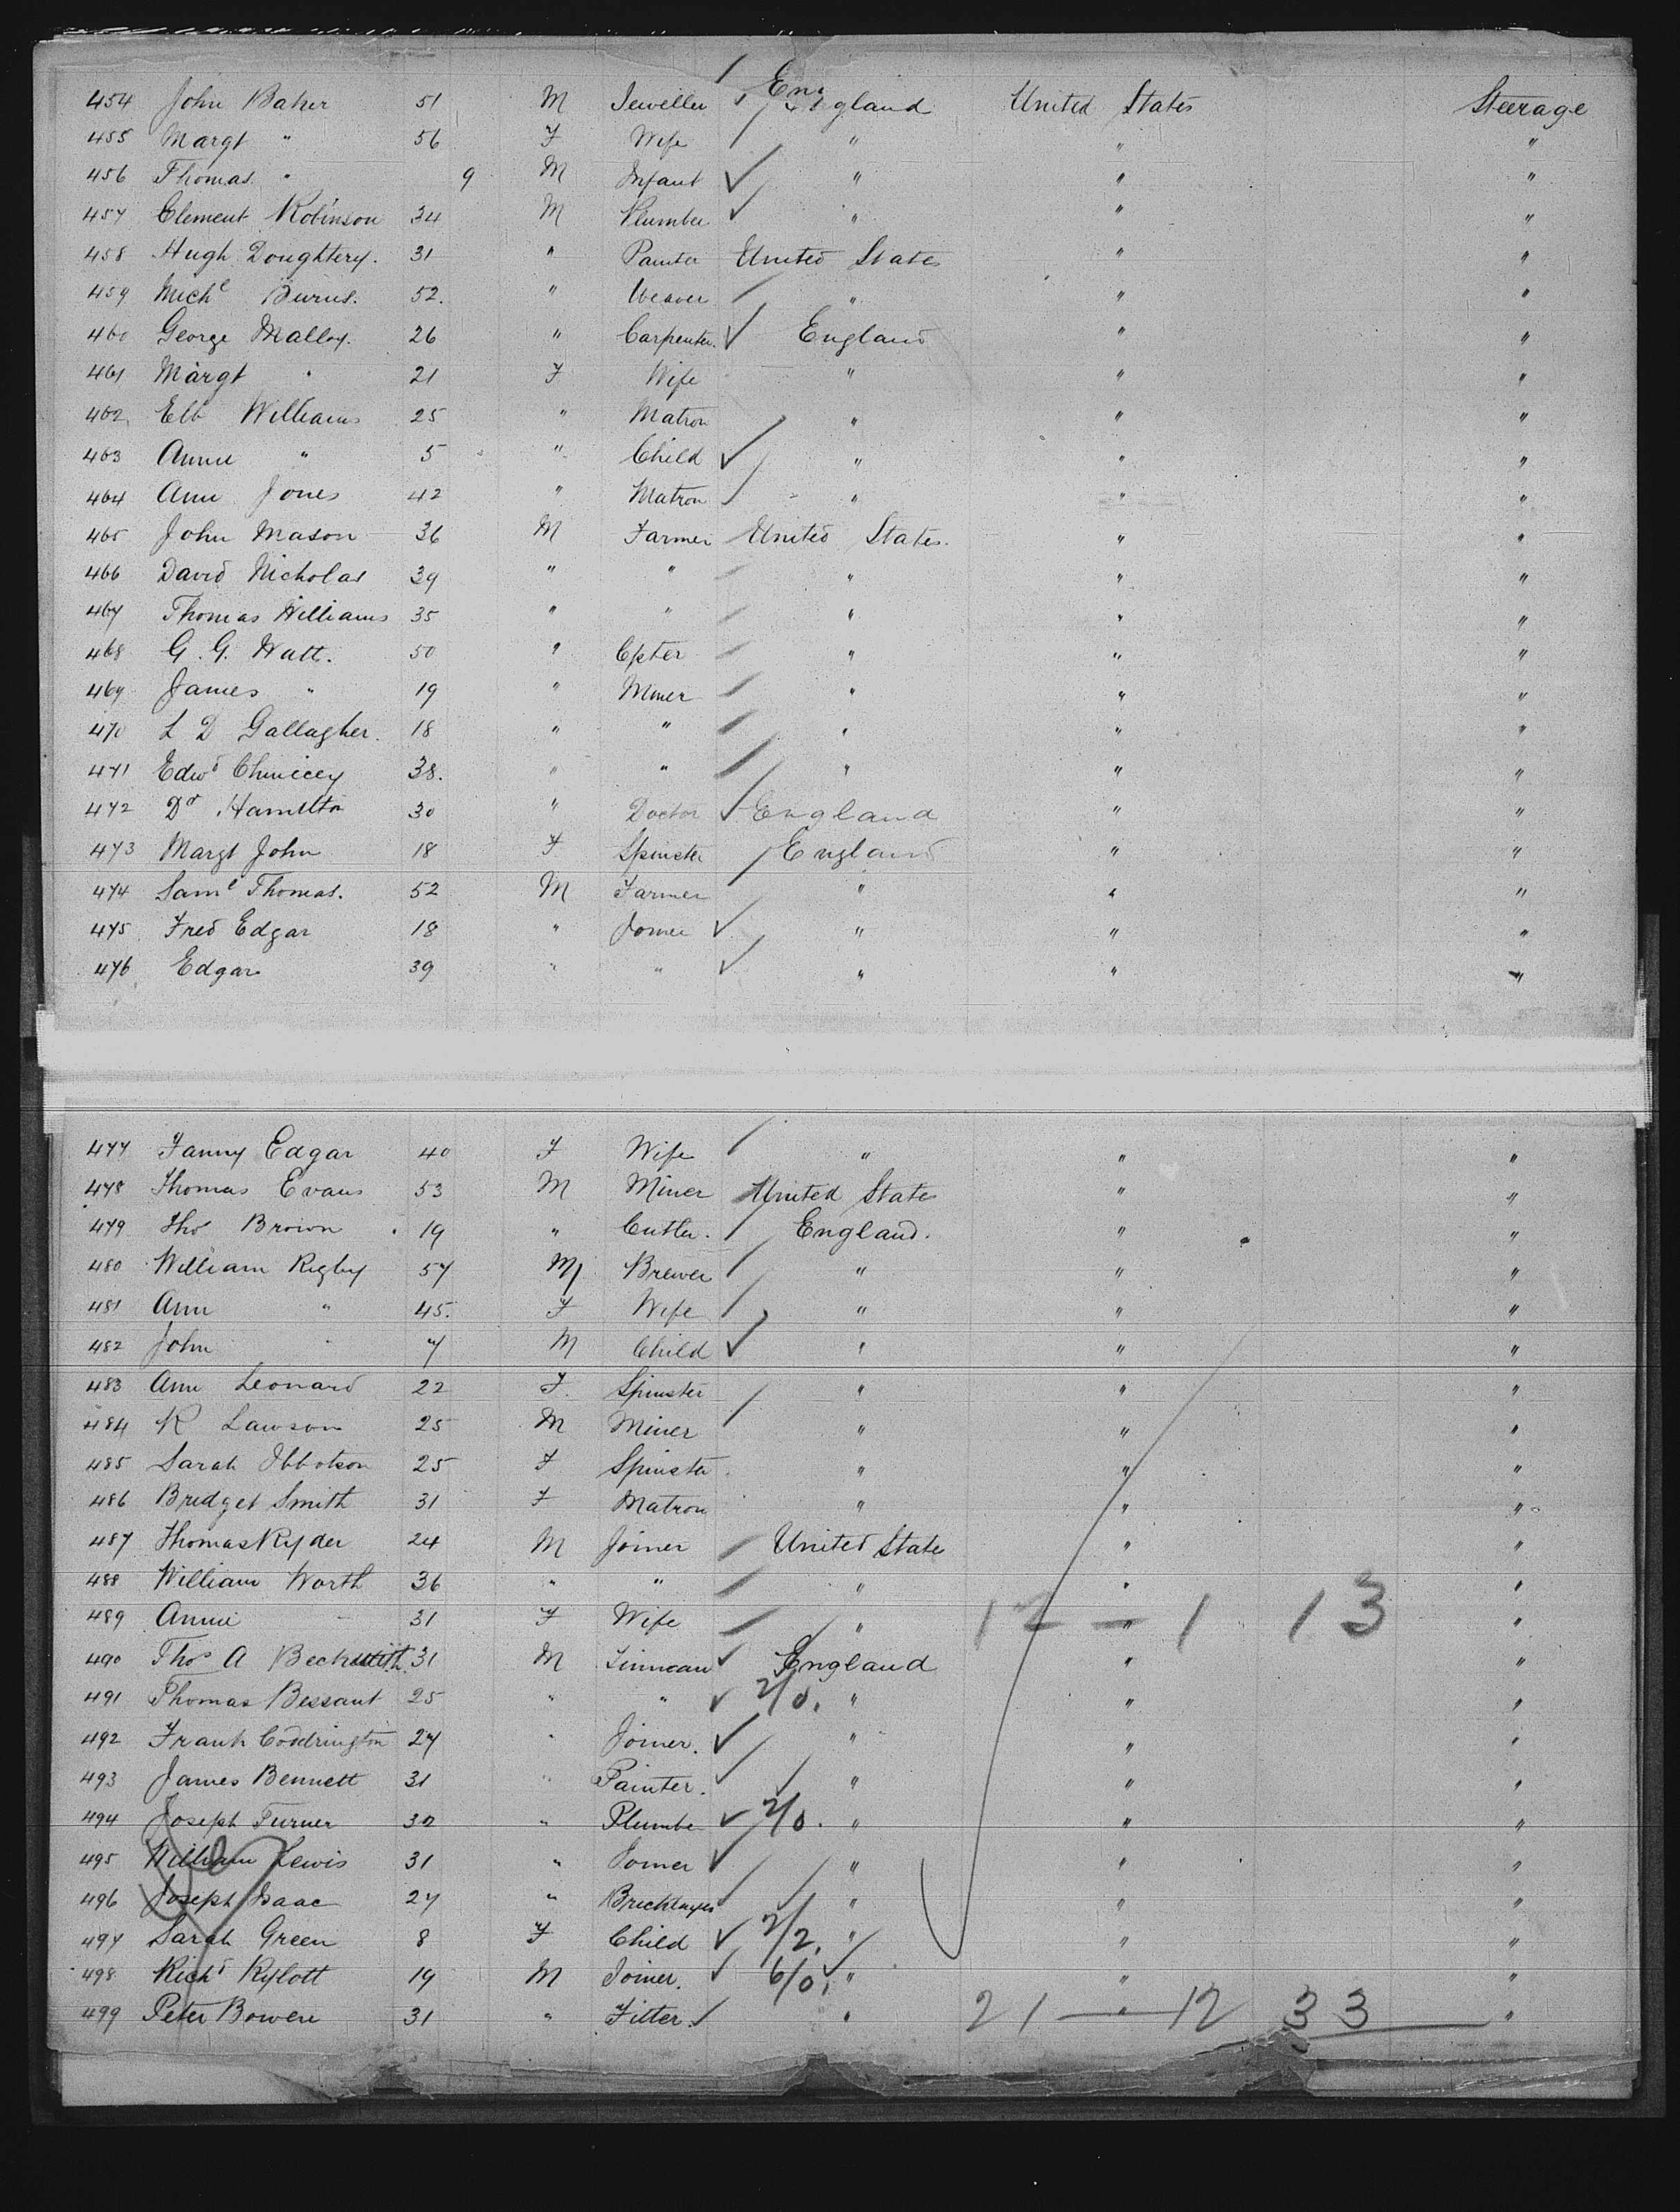 454 John Baker 51 M Jeweller England United States Steerage
455 Margt " 56 F Wife " " "
456 Thomas " 9 M Infant " " "
457 Clement Robinson 34 M Plumber " " "
458 Hugh Doughtery. 31 " Painter United States " "
459 Michl Burns. 52. " Weaver " " "
460 George Malloy. 26 " Carpenter. England " "
461 Margt " 21 F Wife " " "
462 Elb Williams 25 " Matron " " "
463 Annie " 5 " Child " " "
464 Ann Jones 42 " Matron " " "
465 John Mason 36 M Farmer United States. " "
466 David Nicholas 39 " " " " "
467 Thomas Williams 35 " " " " "
468 G. G. Watt. 50 " Cpter " " "
469 James " 19 " Miner " " "
470 L D Gallagher. 18 " " " " "
471 Edwd 38. " " " " "
472 Dr Hamilton 30 " Doctor England " "
473 Margt John 18 F Spinster England " "
474 Saml Thomas. 52 M Farmer " " "
475 Fred Edgar 18 " Joiner " " "
476 Edgar 39 " " " " "
477 Fanny Edgar 40 F Wife " " "
478 Thomas Evans 53 M Miner United States " "
479 Thos Brown 19 " Cutler. England. " "
480 William Rigby 57 M Brewer " " "
481 Ann " 45. F Wife " " "
482 John " 7 M Child " " "
483 Ann Leonard 22 F. Spinster " " "
484 R Lawson 25 M Miner " " "
485 Sarah Ibbotson 25 F Spinster " " "
486 Bridget Smith 31 F Matron " " "
487 Thomas Ryder 24 M Joiner United State " "
488 William Worth 36 " " " " "
489 Annie " 31 F Wife " " " 12 — 1 13
490 Thos A Beckwith. 31 M England " "
491 Thomas Bessant 25 " " 2/0. " " "
492 Frank Coddrington 27 " Joiner. " " "
493 James Bennett 31 " Painter. " " "
494 Joseph Turner 32 " Plumbe 2/0. " " "
495 William Lewis 31 " Joiner " " "
496 Joseph Isaac 27 " Bricklayer " " "
497 Sarah Green 8 F Child 2/2. " " "
498 Richd Rylott 19 M Joiner. 6/0. " " "
499 Peter Bowen 31 " Fitter. " " " 21 — 12 33